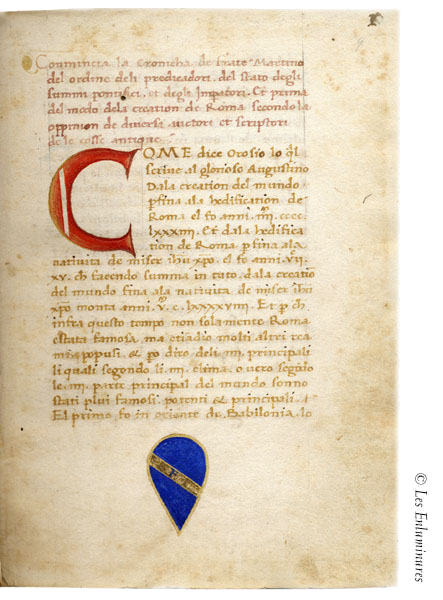 Comincia la Cronicha de frate Martino
del ordine deli predicadori. del stato degli
summi pontifici. et degli Impatori. Et prima
del modo dela creation de Roma secondo la
oppinion de diversi auctori et scriptori
de le cosse antique.
COME dice Orosio lo ql
scrive al glorioso Augustino
Dala creation del mundo
pfina ala hedification de
Roma el fo anni. IIII. cccc
lxxxiiii. Et dala hedifica
tion de Roma pfina ala
nativita de miser ihu xpo. el fo anni. vii.
xv. ch facendo summa in tuto. dala creatio
del mundo fina ala nativita de miser ihu
xpo monta anni. v. c. lxxxxviiii. Et p ch
infra questo tempo non solamente Roma
estata famosa. ma etiadio molti altri rea
mi popusi. & po diro deli. iiii. principali
li quali segondo li. iiii. clima. o vero segudo
le. iiii. parte principal del mundo sonno
stati plui famosi. potenti & principali.
El primo fo in oriente de Babilonia. lo
© Les Enluminures